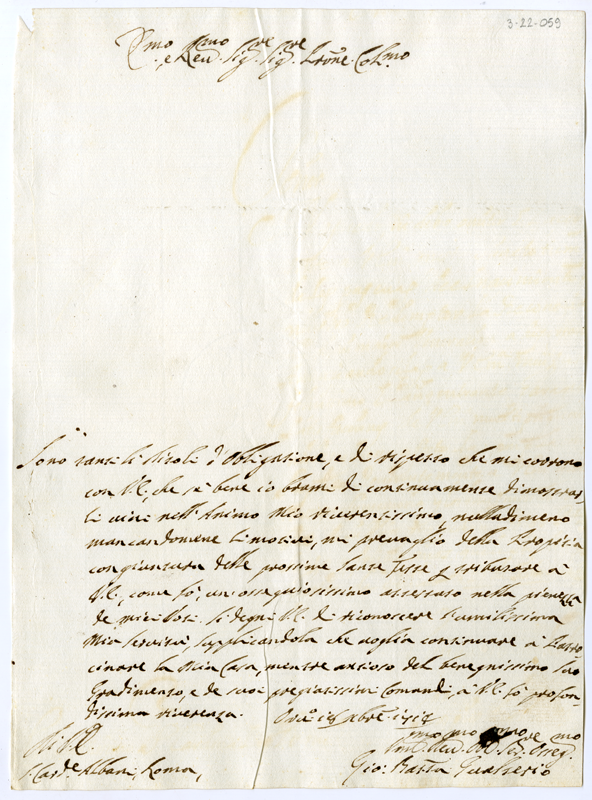 3-22-059
Em̃o
e Reu.mo Sig.re Sig.re Prōne Col.mo
Sono tanti li titoli d'obligatione, e di rispetto che mi corrono
con V.E., che se bene io brami di continuamente dimostrar,
li uiui nell'Animo Mio riuerentissimo, nulladimeno
mancandomene li motiui, mi preuaglio della Propitia
congiuntura delle prossime Sante Feste p tributare à
V.E., come fò, un ossequiosissimo attestato nella pienezza
de miei Voti. Si degni V.E. di riconoscere l'umilissima
Mia seruitù, supplicandola che uoglia continuare à Patro
cinare la Mia Casa, mentre ansioso del benegnissimo Suo
Gradimento, e de suoi pregiatissimi Comandi, à V.E. fò profon,
dissima riuerenza.
Di V.E.
S. Card.e Albani, Roma,
Gio: Batta Gualterio